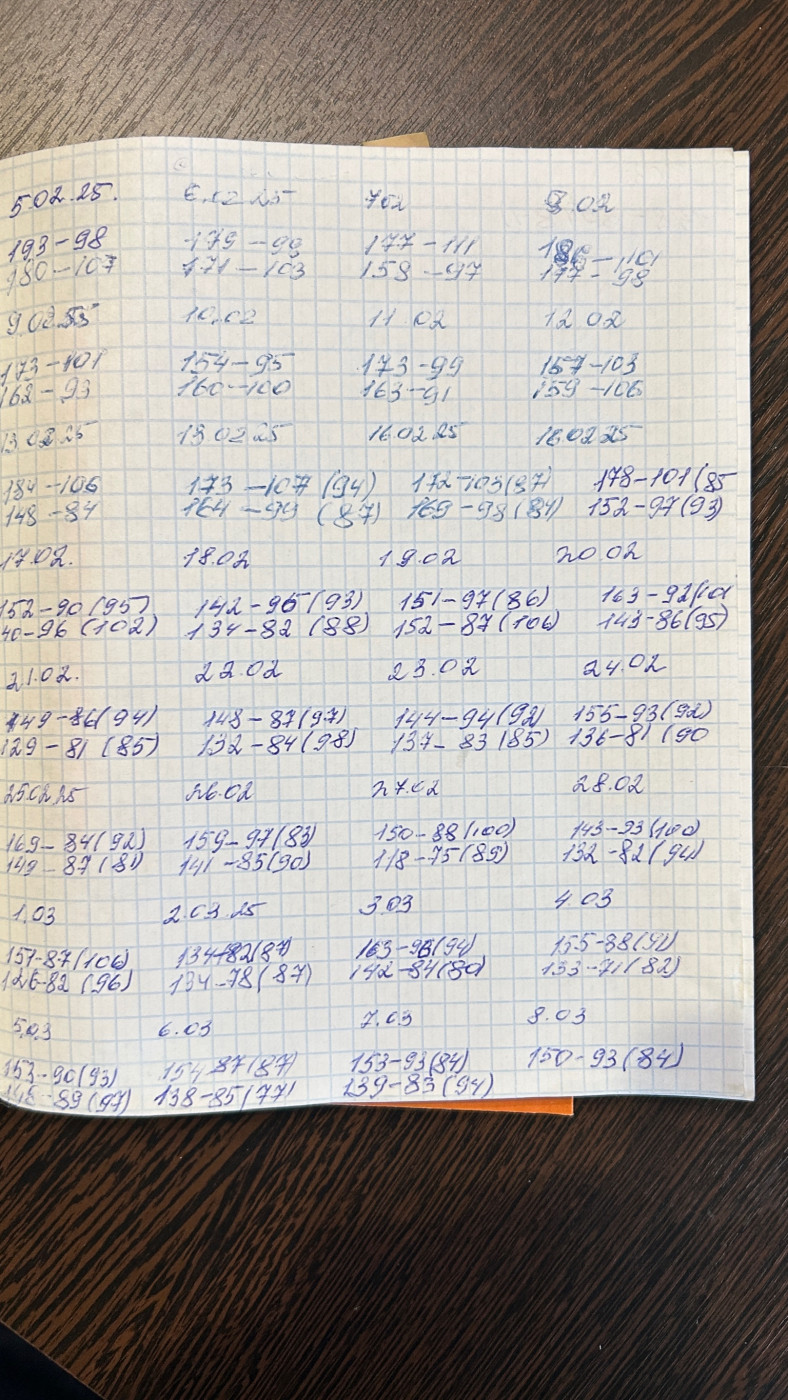 5.02.25. 6.02.25 7.02 8.02
193-98 179-99 177-111 186-101
180-107 171-103 158-97 177-98
9.02.25 10.02 11.02 12.02
173-101 154-95 173-99 157-103
162-93 160-100 163-91 159-106
13.02.25 13.02.25 16.02.25 16.02.25
184-106 173-107 (94) 172-103(87) 178-101(85
148-84 164-99 (87) 169-98(84) 152-97(93)
17.02. 18.02 19.02 20.02
152-90(95) 142-95(93) 151-97(86) 163-92(101
40-96 (102) 134-82 (88) 152-87(106) 143-86(95)
21.02. 22.02 23.02 24.02
149-86(94) 148-87(97) 144-94(92) 155-93(92)
129-81 (85) 132-84(98) 137-83(85) 136-81(90
25.02.25 26.02 27.02 28.02
169-84(92) 159-97(83) 150-88(100) 143-93(100)
149-87(81) 141-85(90) 118-75(89) 132-82(94)
1.03 2.03.25 3.03 4.03
157-87(106) 134-82(87) 163-96(94) 155-88(91)
126-82 (96) 134-78(87) 142-84(80) 133-71(82)
5.03 6.03 7.03 8.03
153-90(93) 154-87(87) 153-93(84) 150-93(84)
148-89(97) 138-85(77) 139-83(94)